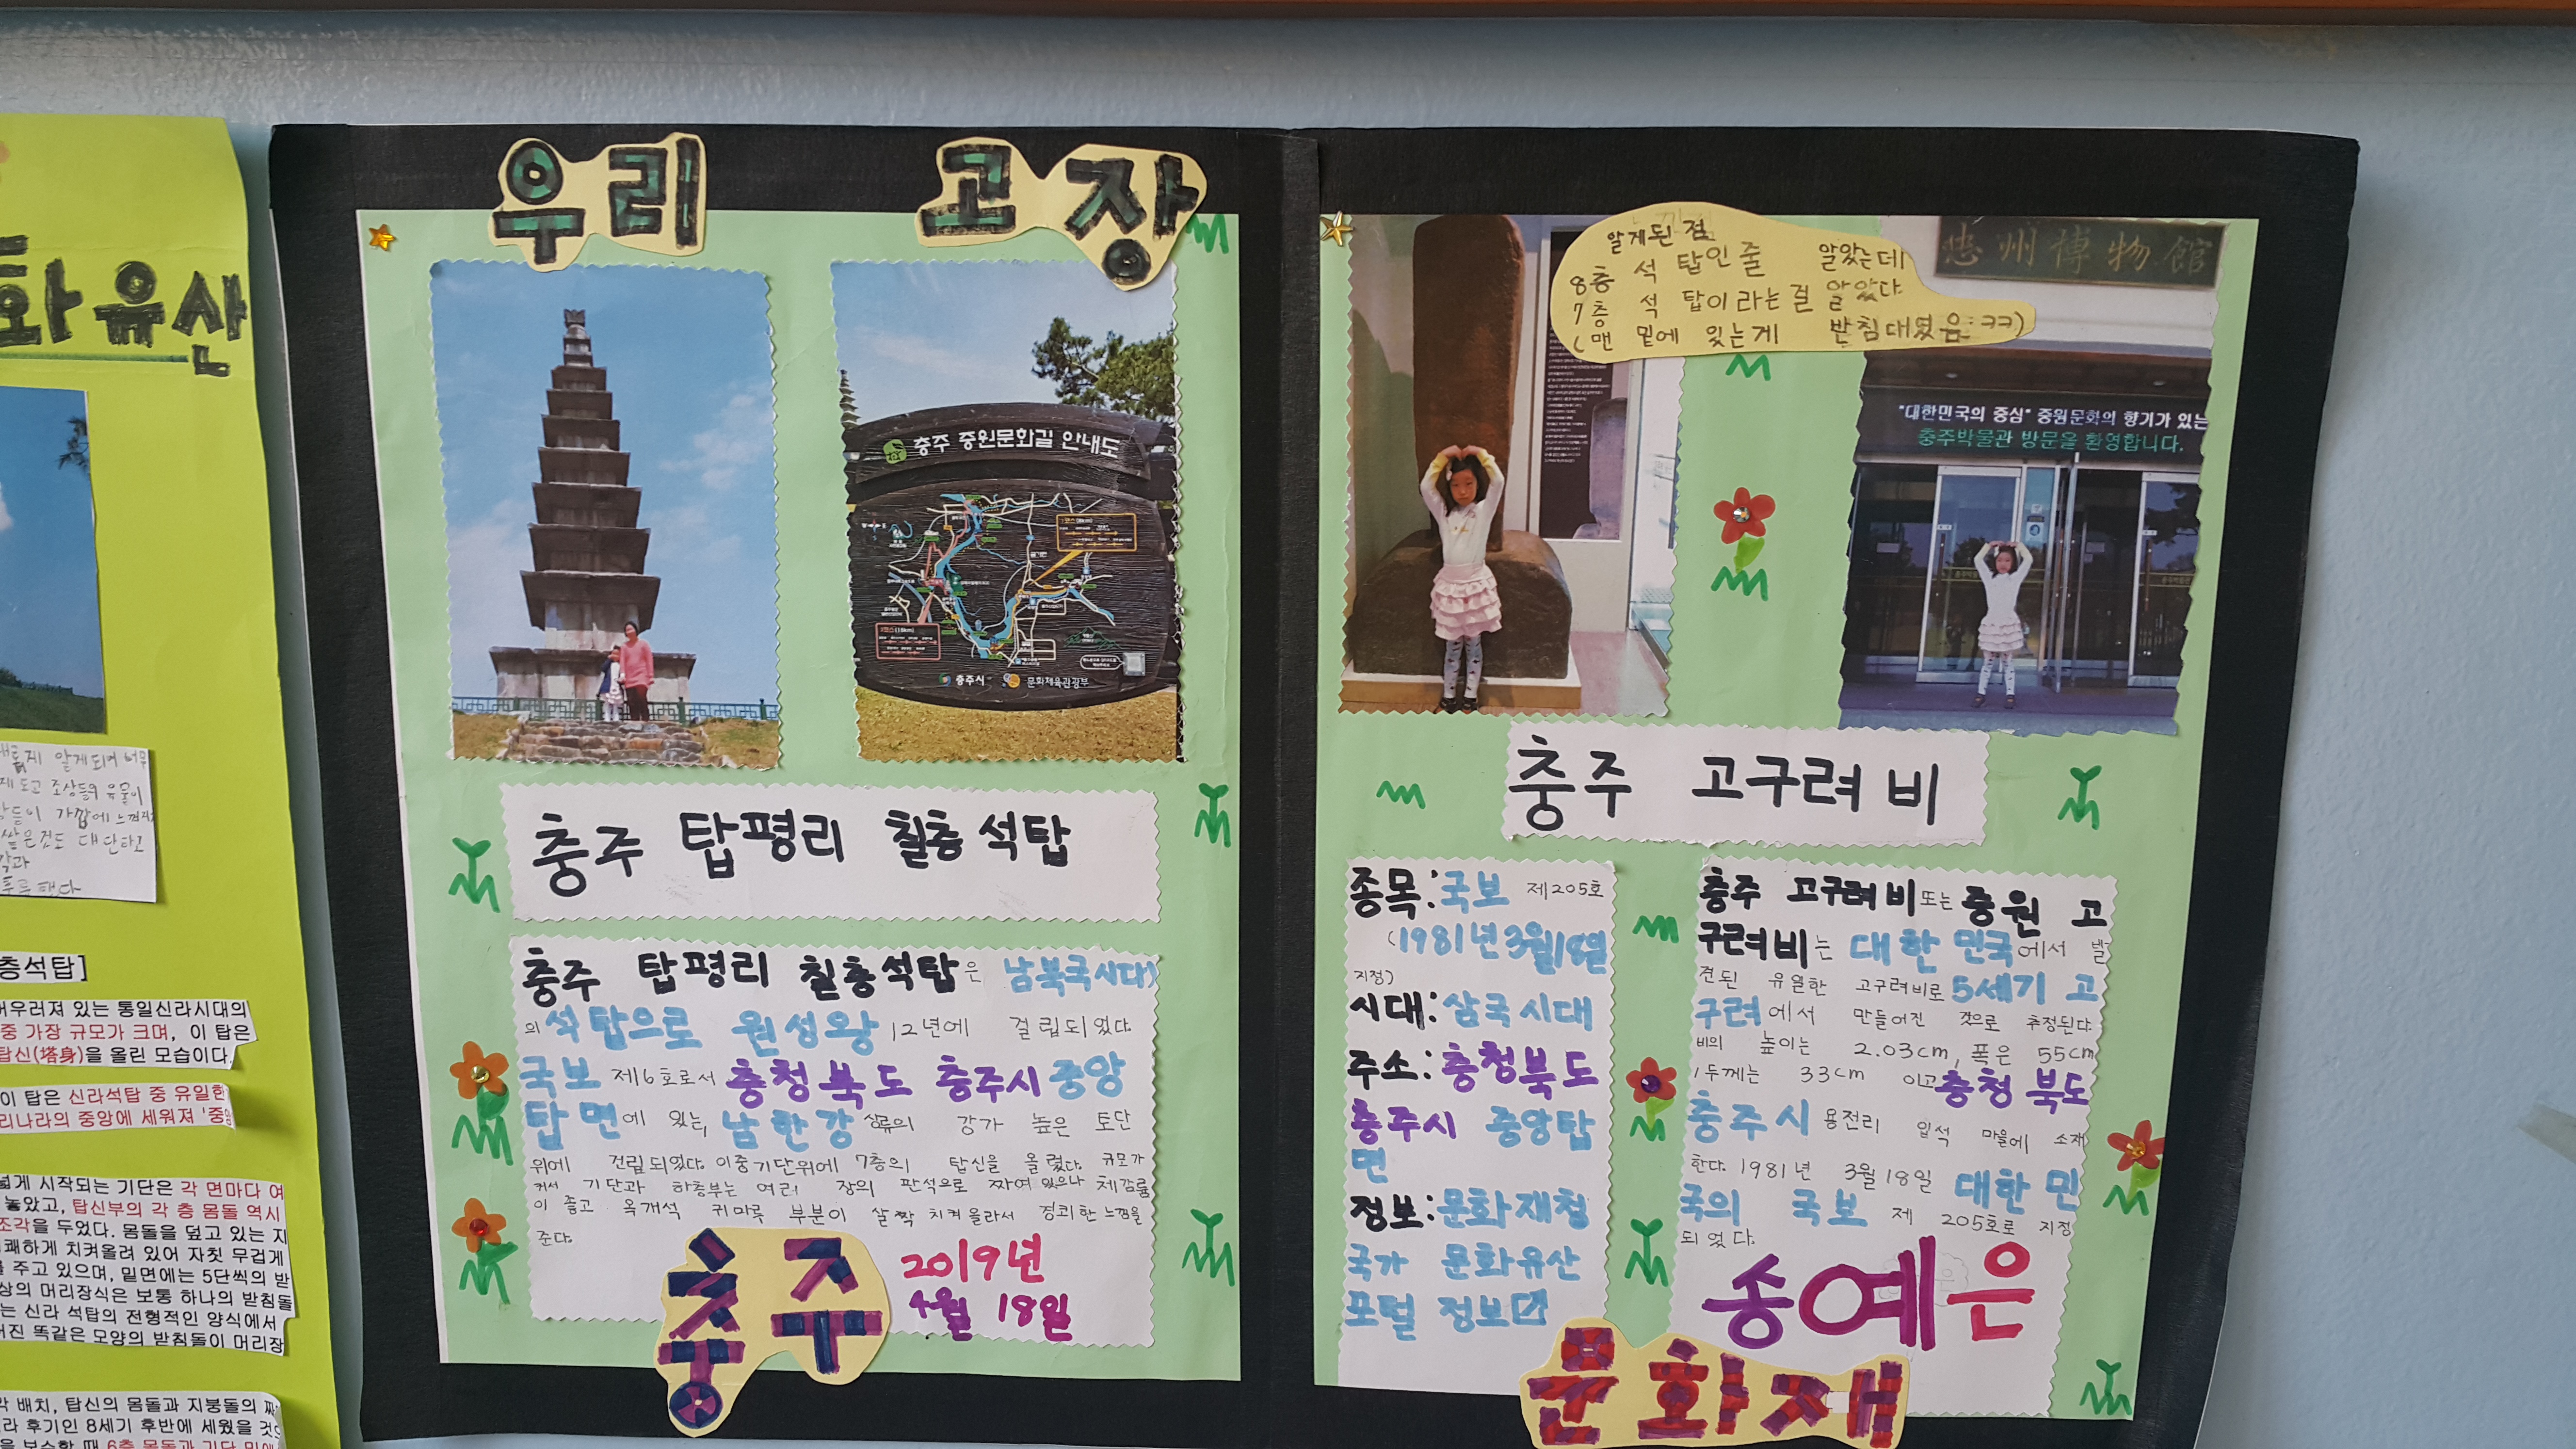 화유산
알게되며
조상들의 유물이
가깝에
쌓은것도 대단하고
층석탑]
어우러져 있는 통일신라시대의
중 가장 규모가 크며, 이 탑은
탑신(塔身)을 올린 모습이다.
이 탑은 신라석탑 중 유일한
리나라의 중앙에 세워져 '중앙
넓게 시작되는 기단은 각 면마다 여
놓았고, 탑신부의 각 층 몸돌 역시
조각을 두었다. 몸돌을 덮고 있는 지
쾌하게 치켜올려 있어 자칫 무겁게
주고 있으며, 밑면에는 5단씩의 받
상의 머리장식은 보통 하나의 받침돌
는 신라 석탑의 전형적인 양식에서
어진 똑같은 모양의 받침돌이 머리장
배치, 탑신의 몸돌과 지붕돌의 짜
라 후기인 8세기 후반에 세웠을 것
우리 고장
충주 중원문화길 안내도
충주시 문화체육관광부
충주 탑평리 칠층석탑
충주 탑평리 칠층석탑은 남북국시대)
의 석탑으로 원성왕 12년에 걸립되었다.
국보 제6호로서 충청북도 충주시 중앙
탑면에 있는, 남한강 상류의 강가 높은 토단
위에 건립되었다. 이중기단위에 7층의 탑신을 올렸다. 규모가
커서 기단과 하층부는 여러 장의 판석으로 짜여 있으나 체감률
이 좋고 옥개석 귀마루 부분이 살짝 치켜올라서 경쾌한 느낌을
준다.
충주
2019년
4월 18일
알게된 점
8층 석탑인줄 알았는데
7층 석탑이라는걸 알았다
(맨 밑에 있는게 받침대였음:ㅋㅋ)
忠州博物館
"대한민국의 중심" 중원문화의 향기가 있는
충주박물관 방문을 환영합니다.
충주 고구려비
종목:국보 제205호
(1981년3월18일
지정)
시대:삼국시대
주소:충청북도
충주시 중앙탑
면
정보:문화재청
국가 문화유산
포털 정보
충주 고구려비또는 중원 고
구려비는 대한민국에서 발
견된 유일한 고구려비로 5세기 고
구려에서 만들어진 것으로 추정된다.
비의 높이는 2.03cm, 폭은 55cm
, 두께는 33cm 이고 충청북도
충주시 용전리 입석 마을에 소재
한다. 1981년 3월18일 대한민
국의 국보 제 205호로 지정
되었다.
송예은
문화재